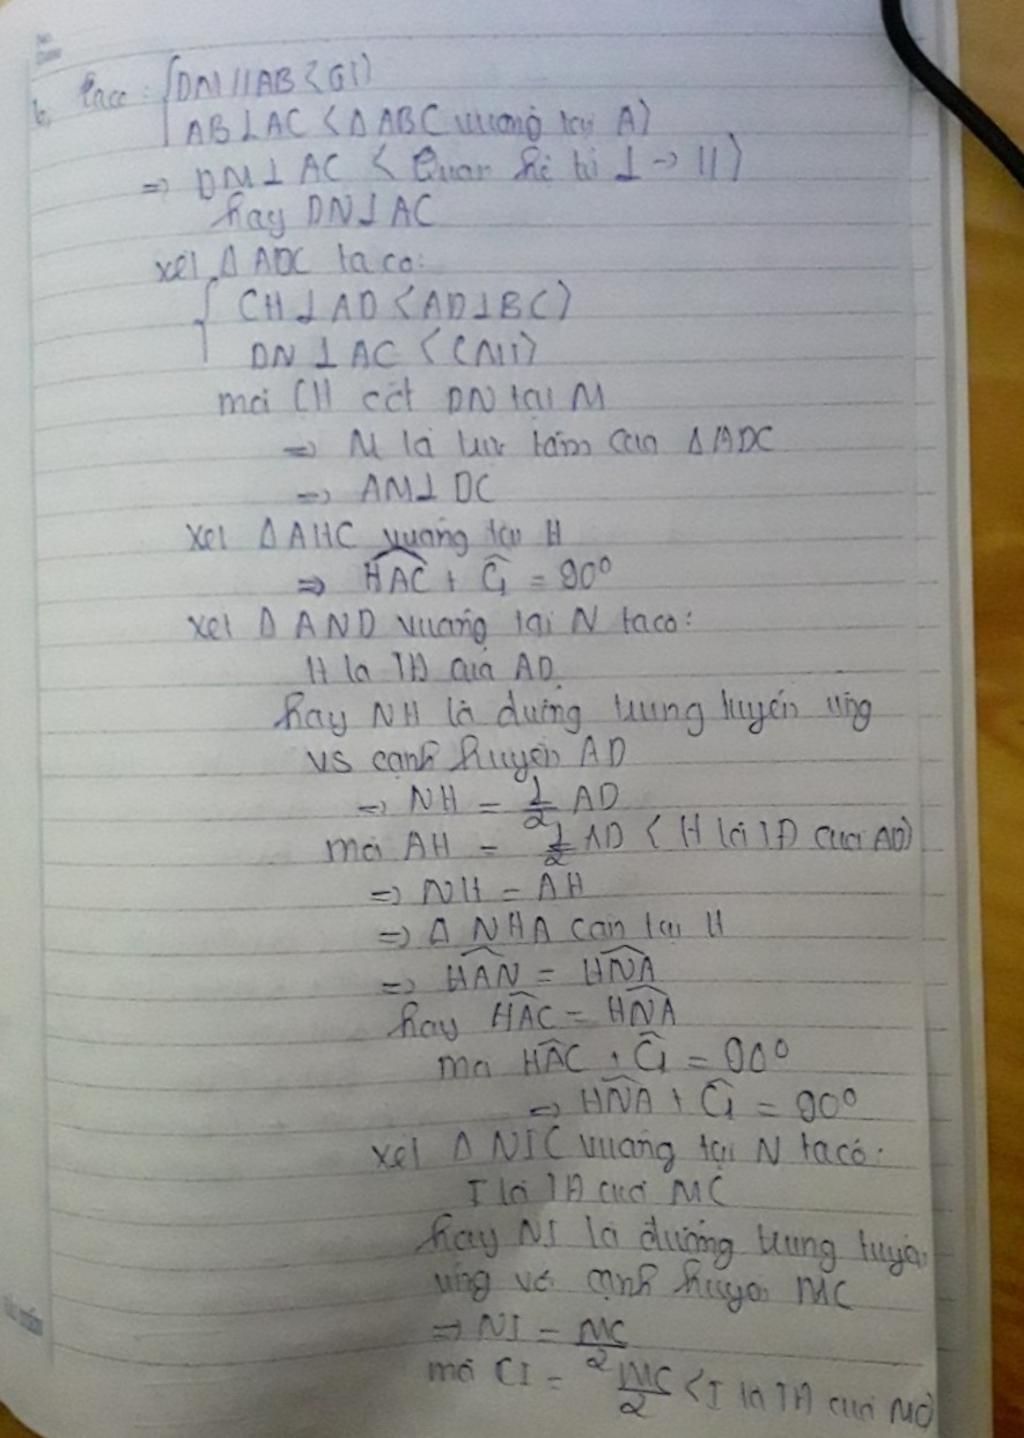 b, Ta có: { DM // AB < GT)
AB ⊥ AC < Δ ABC vuông tại A)
=> DM ⊥ AC < Quan hệ từ ⊥ -> //)
hay DN ⊥ AC
xét Δ ADC ta có:
{ CH ⊥ AD < AD ⊥ BC)
DN ⊥ AC < CMT)
mà CH cắt DN tại M
=> M là trực tâm của Δ ADC
=> AM ⊥ DC
Xét Δ AHC vuông tại H
=> HAC + C1 = 90°
xét Δ AND vuông tại N ta có:
H là TĐ của AD
hay NH là đường trung tuyến ứng
vs cạnh huyền AD
=> NH = 1/2 AD
mà AH = 1/2 AD < H là TĐ của AD)
=> NH = AH
=> Δ NHA cân tại H
=> HAN = HNA
hay HAC = HNA
mà HAC + C1 = 90°
=> HNA + C1 = 90°
xét Δ NIC vuông tại N ta có:
I là TĐ của MC
hay NI là đường trung tuyến
ứng với cạnh huyền MC
=> NI = MC/2
mà CI = MC/2 < I là TĐ của MC)